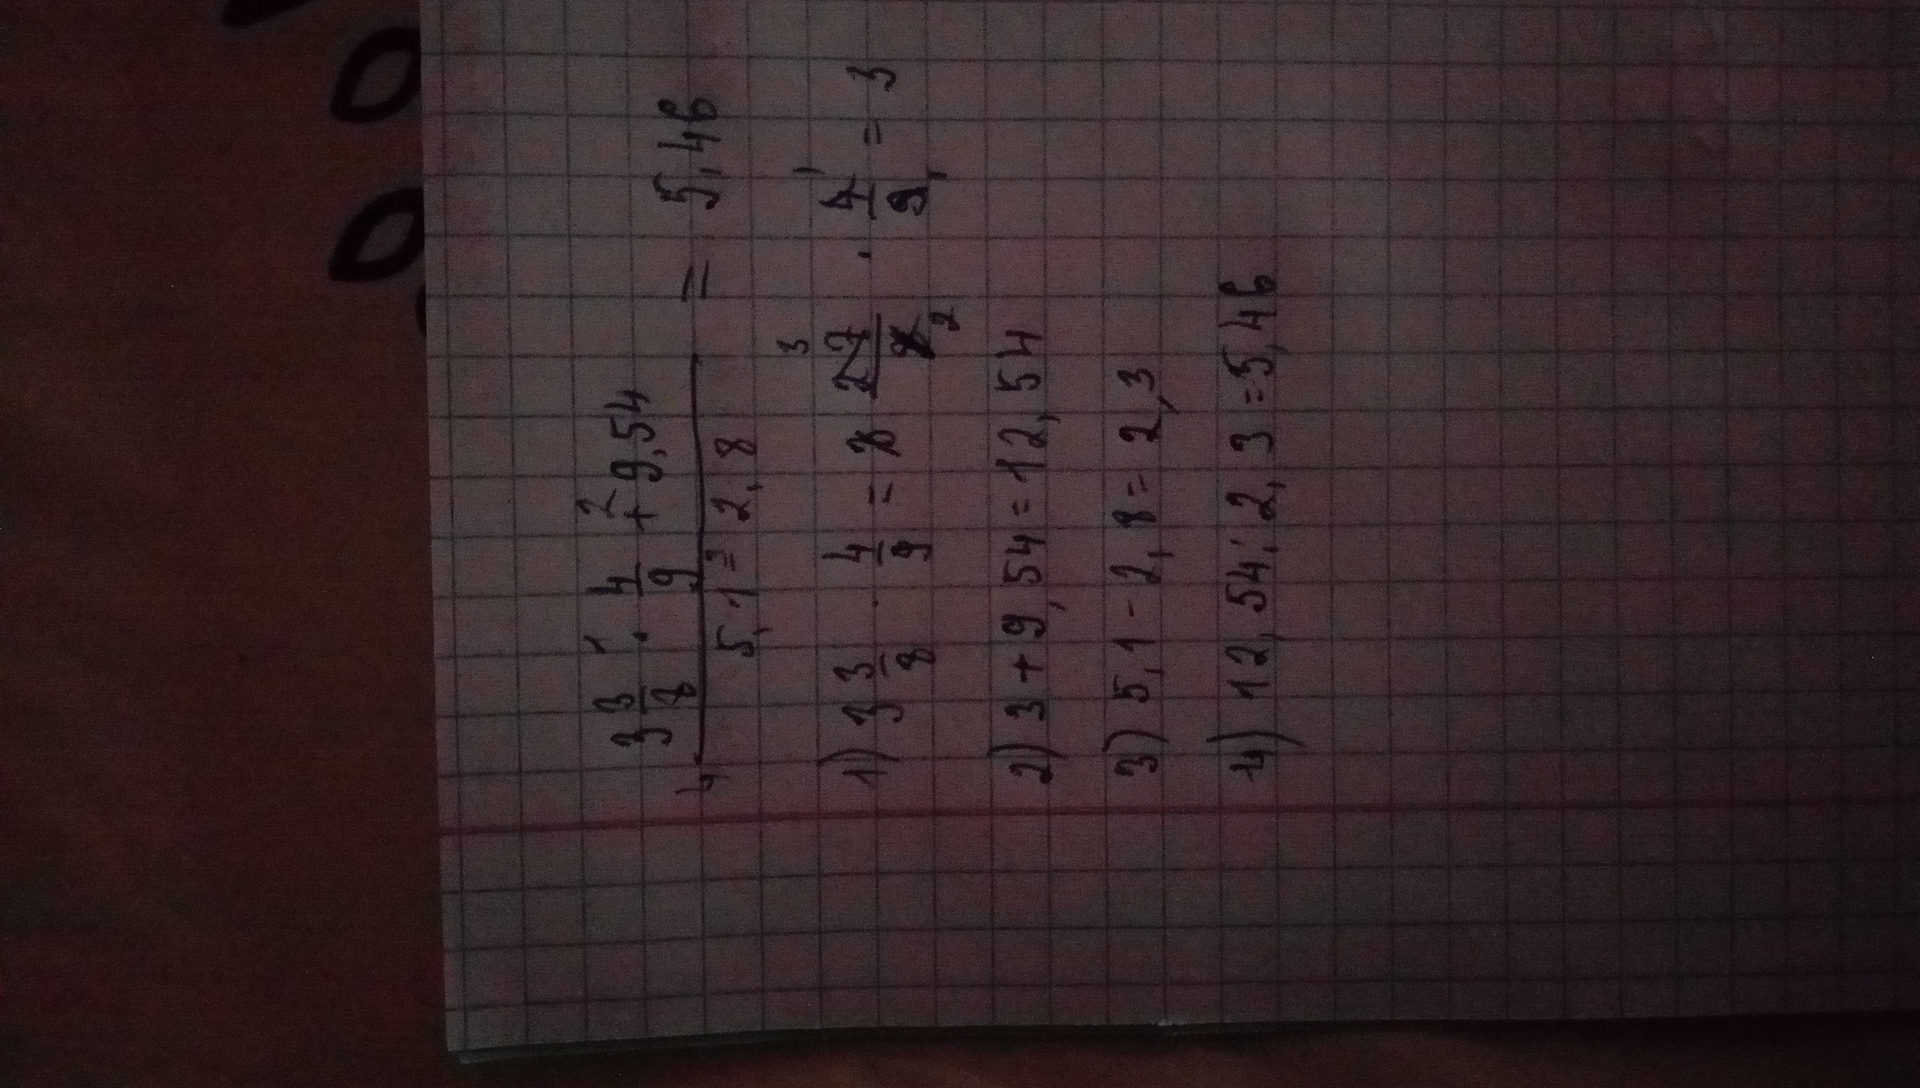 3 3/8 · 4/9 + 9,54
1 2
4
5,1 - 2,8 = 5,46
3
1) 3 3/8 · 4/9 = 27/8 · 4/9 = 3
3 2 1 1
2) 3 + 9,54 = 12,54
3) 5,1 - 2,8 = 2,3
4) 12,54 : 2,3 = 5,46